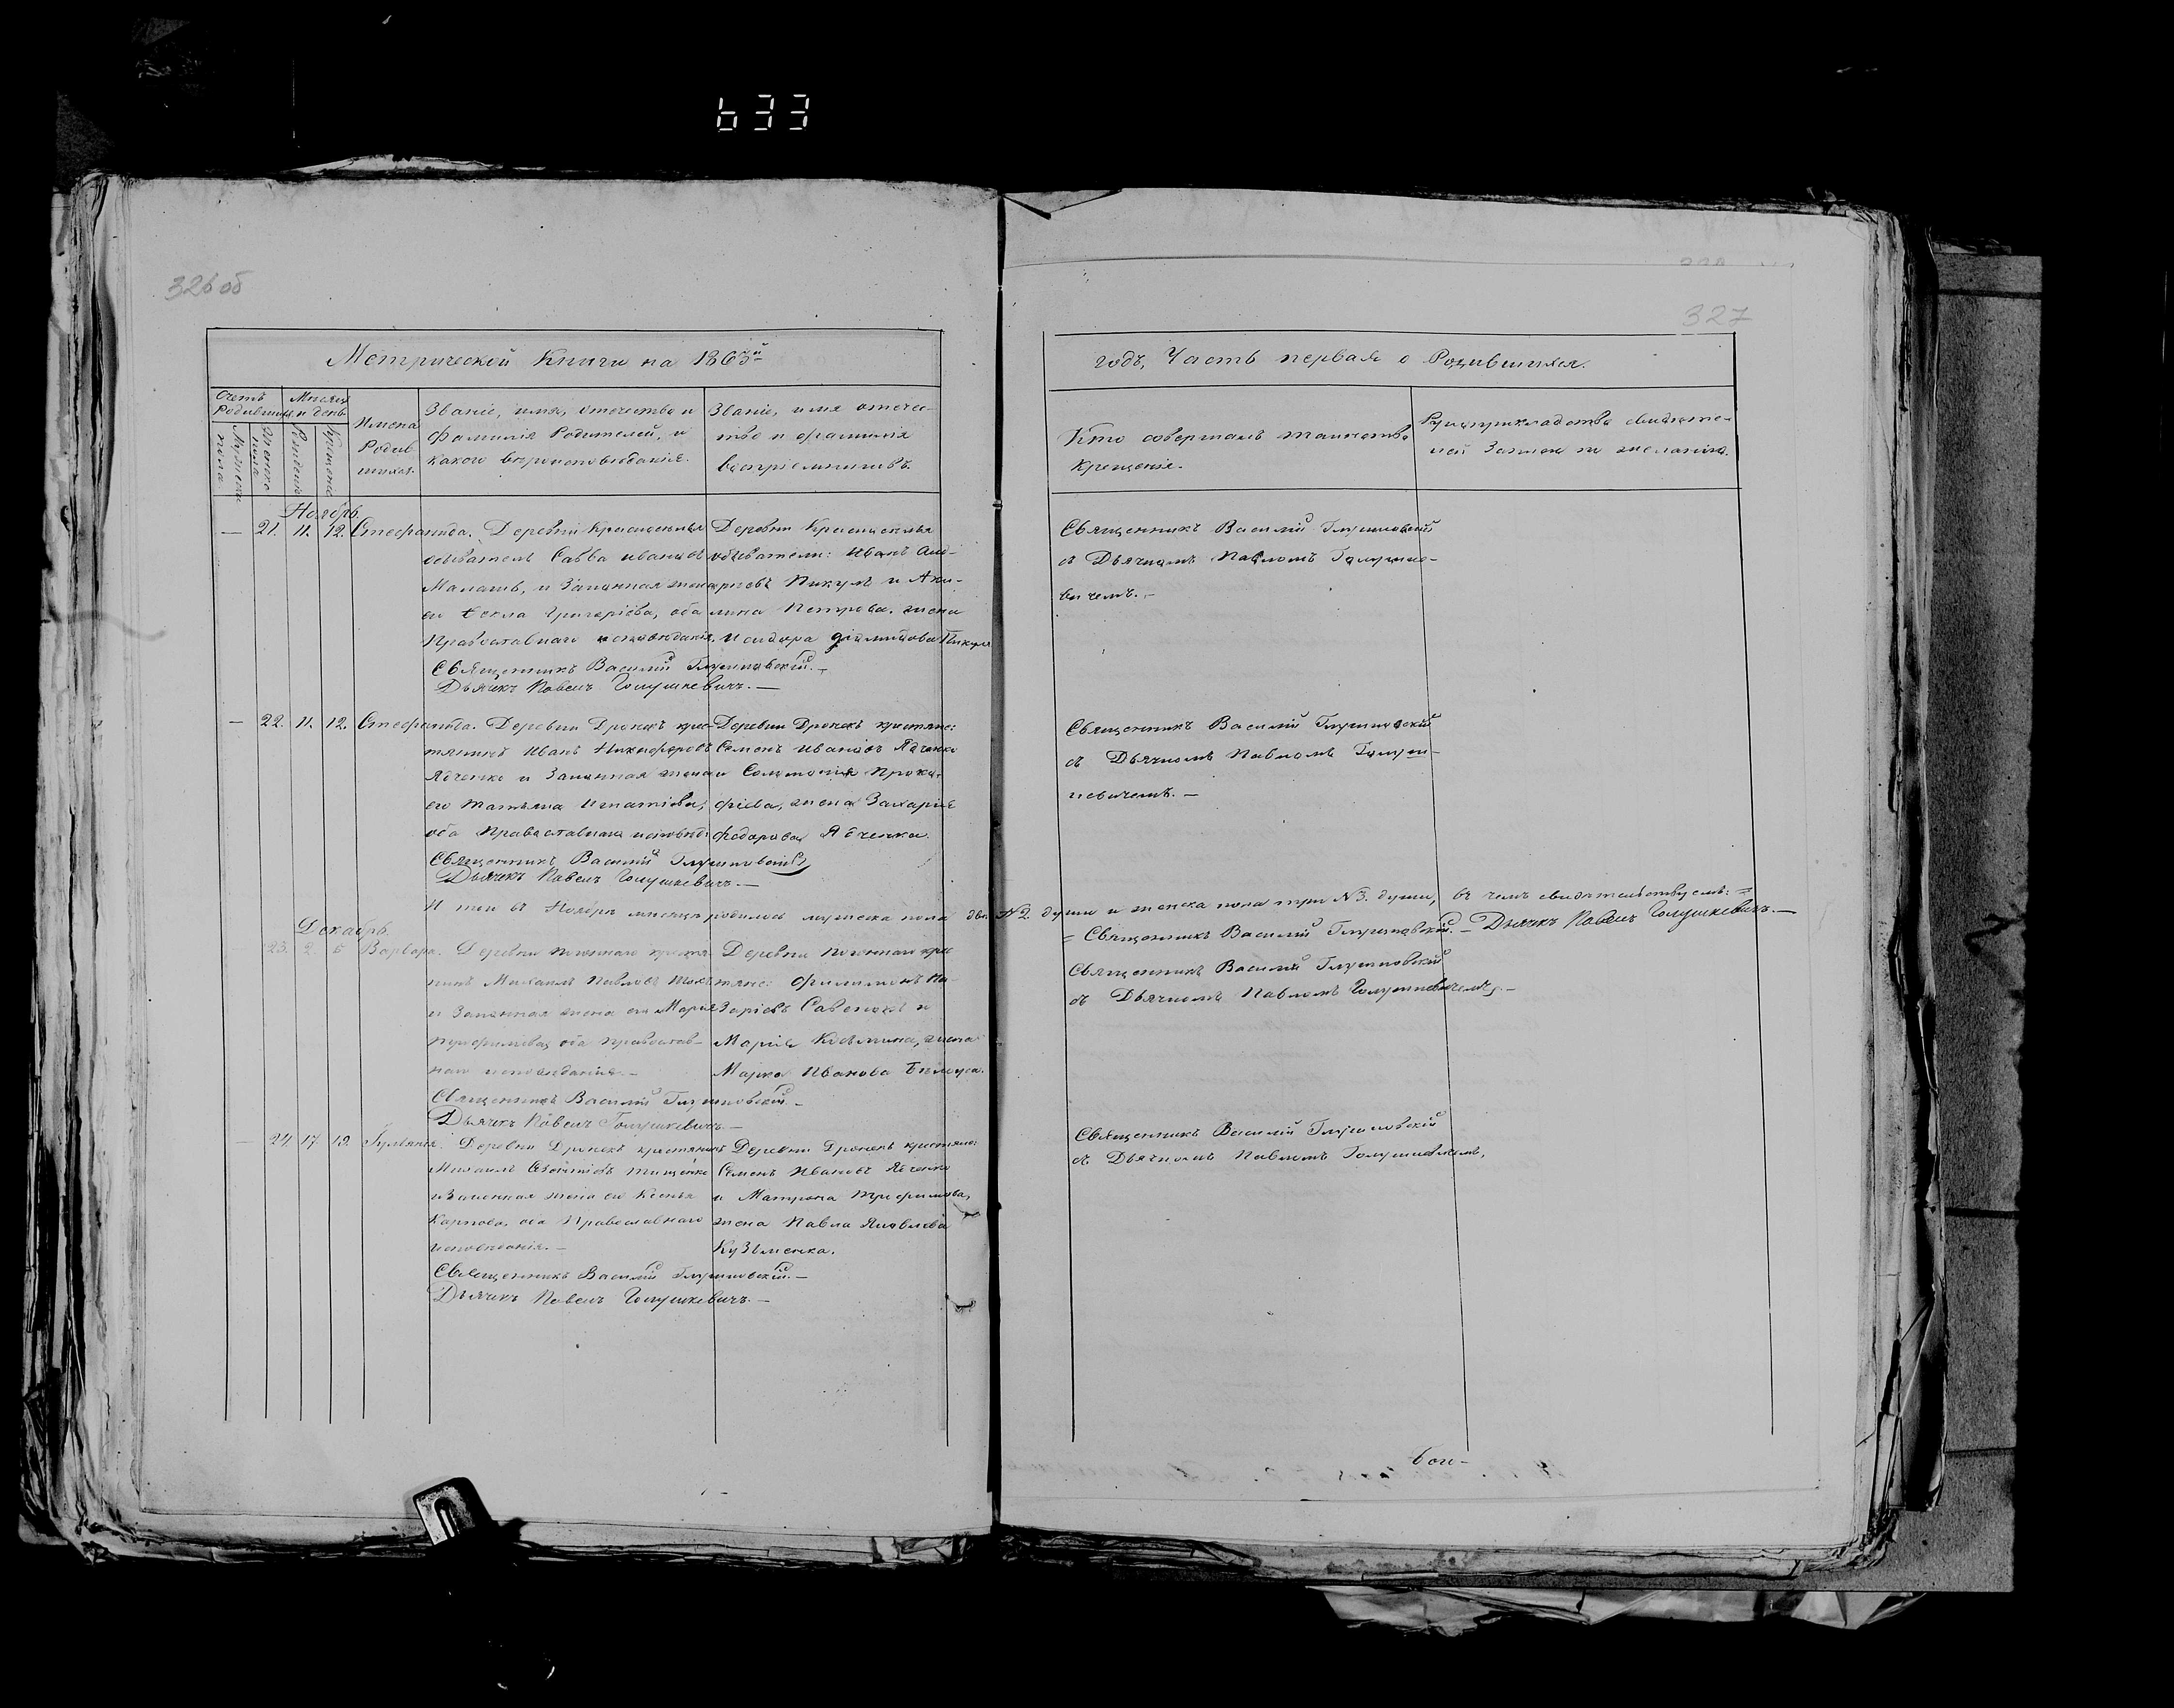 633
326 об
327
Метрической Книги на 1863й
годъ, Часть первая о Родившихся.
Счетъ Родившихся
Мужеска пола
Женска пола
Месяцъ и день
Рожденія
Крещенія
Имена Родившихся.
Званіе, имя, отчество и
фамилія Родителей, и
какого вероисповѣданія.
Званіе, имя отчест-
тво и фамилія
воспріемниковъ.
Кто совершалъ таинство
крещенія.
Рукоприкладство свидѣте-
лей Записи по желанію.
Ноябрь.
— 21. 11. 12. Стефанида.
Деревни
обыватель Савва Ивановъ
и Законная жена
его Текла Григоріева, оба
Православнаго исповѣданія,
Священникъ Василій Глушковскій.—
Дьячекъ Павелъ Голушкевичъ.—
Деревни
обыватели: Иванъ
Пикулъ и Аки-
лина Петрова, жена
Исидора Пикула
Священникъ Василій Глушковскій
съ Дьячкомъ Павломъ Голушке-
вичемъ.—
— 22. 11. 12. Стефанида.
Деревни Дронекъ крес-
тянинъ Иванъ Никифоровъ
Ядченко и Законная жена
его Татьяна Игнатіева,
оба Православнаго исповѣд:
Священникъ Василій Глушковскій
Дьячекъ Павелъ Голушкевичъ.—
Деревни Дронекъ крестяне:
Семенъ Ивановъ Ядченко
и Соломонія Проко-
фіева, жена Захарія
Федорова Ядченка.
Священникъ Василій Глушковскій
съ Дьячкомъ Павломъ Голуш-
кевичемъ.—
И того въ Ноябрѣ месяцѣ родилось мужеска пола два №2. души и женска пола три №3. души, въ чемъ свидѣтельствуемъ:=
= Священникъ Василій Глушковскій.— Дьячекъ Павелъ Голушкевичъ.—
Декабрь.
23. 2. 6 Варвара.
Деревни
Михаилъ Павловъ
и Законная жена его Марія
Трофимова, оба православ-
наго исповѣданія.—
Священникъ Василій Глушковскій.—
Дьячекъ Павелъ Голушкевичъ.—
Деревни
Филимонъ На-
заріевъ Савенокъ и
Марія Козьмина, жена
Марка Иванова Белоуса.
Священникъ Василій Глушковскій
съ Дьячкомъ Павломъ Голушкевичемъ.—
— 24. 17. 19. Гульянія.
Деревни Дронекъ крестянинъ
Михаилъ Тищенко
и Законная жена его Ксенія
Карпова, оба Православнаго
исповѣданія.—
Священникъ Василій Глушковскій.—
Дьячекъ Павелъ Голушкевичъ.—
Деревни Дронекъ крестяне:
Семенъ Ивановъ Ядченко
и Матрона Трофимова,
жена Павла Яковлева
Кузьменка.
Священникъ Василій Глушковскій
съ Дьячкомъ Павломъ Голушкевичемъ.